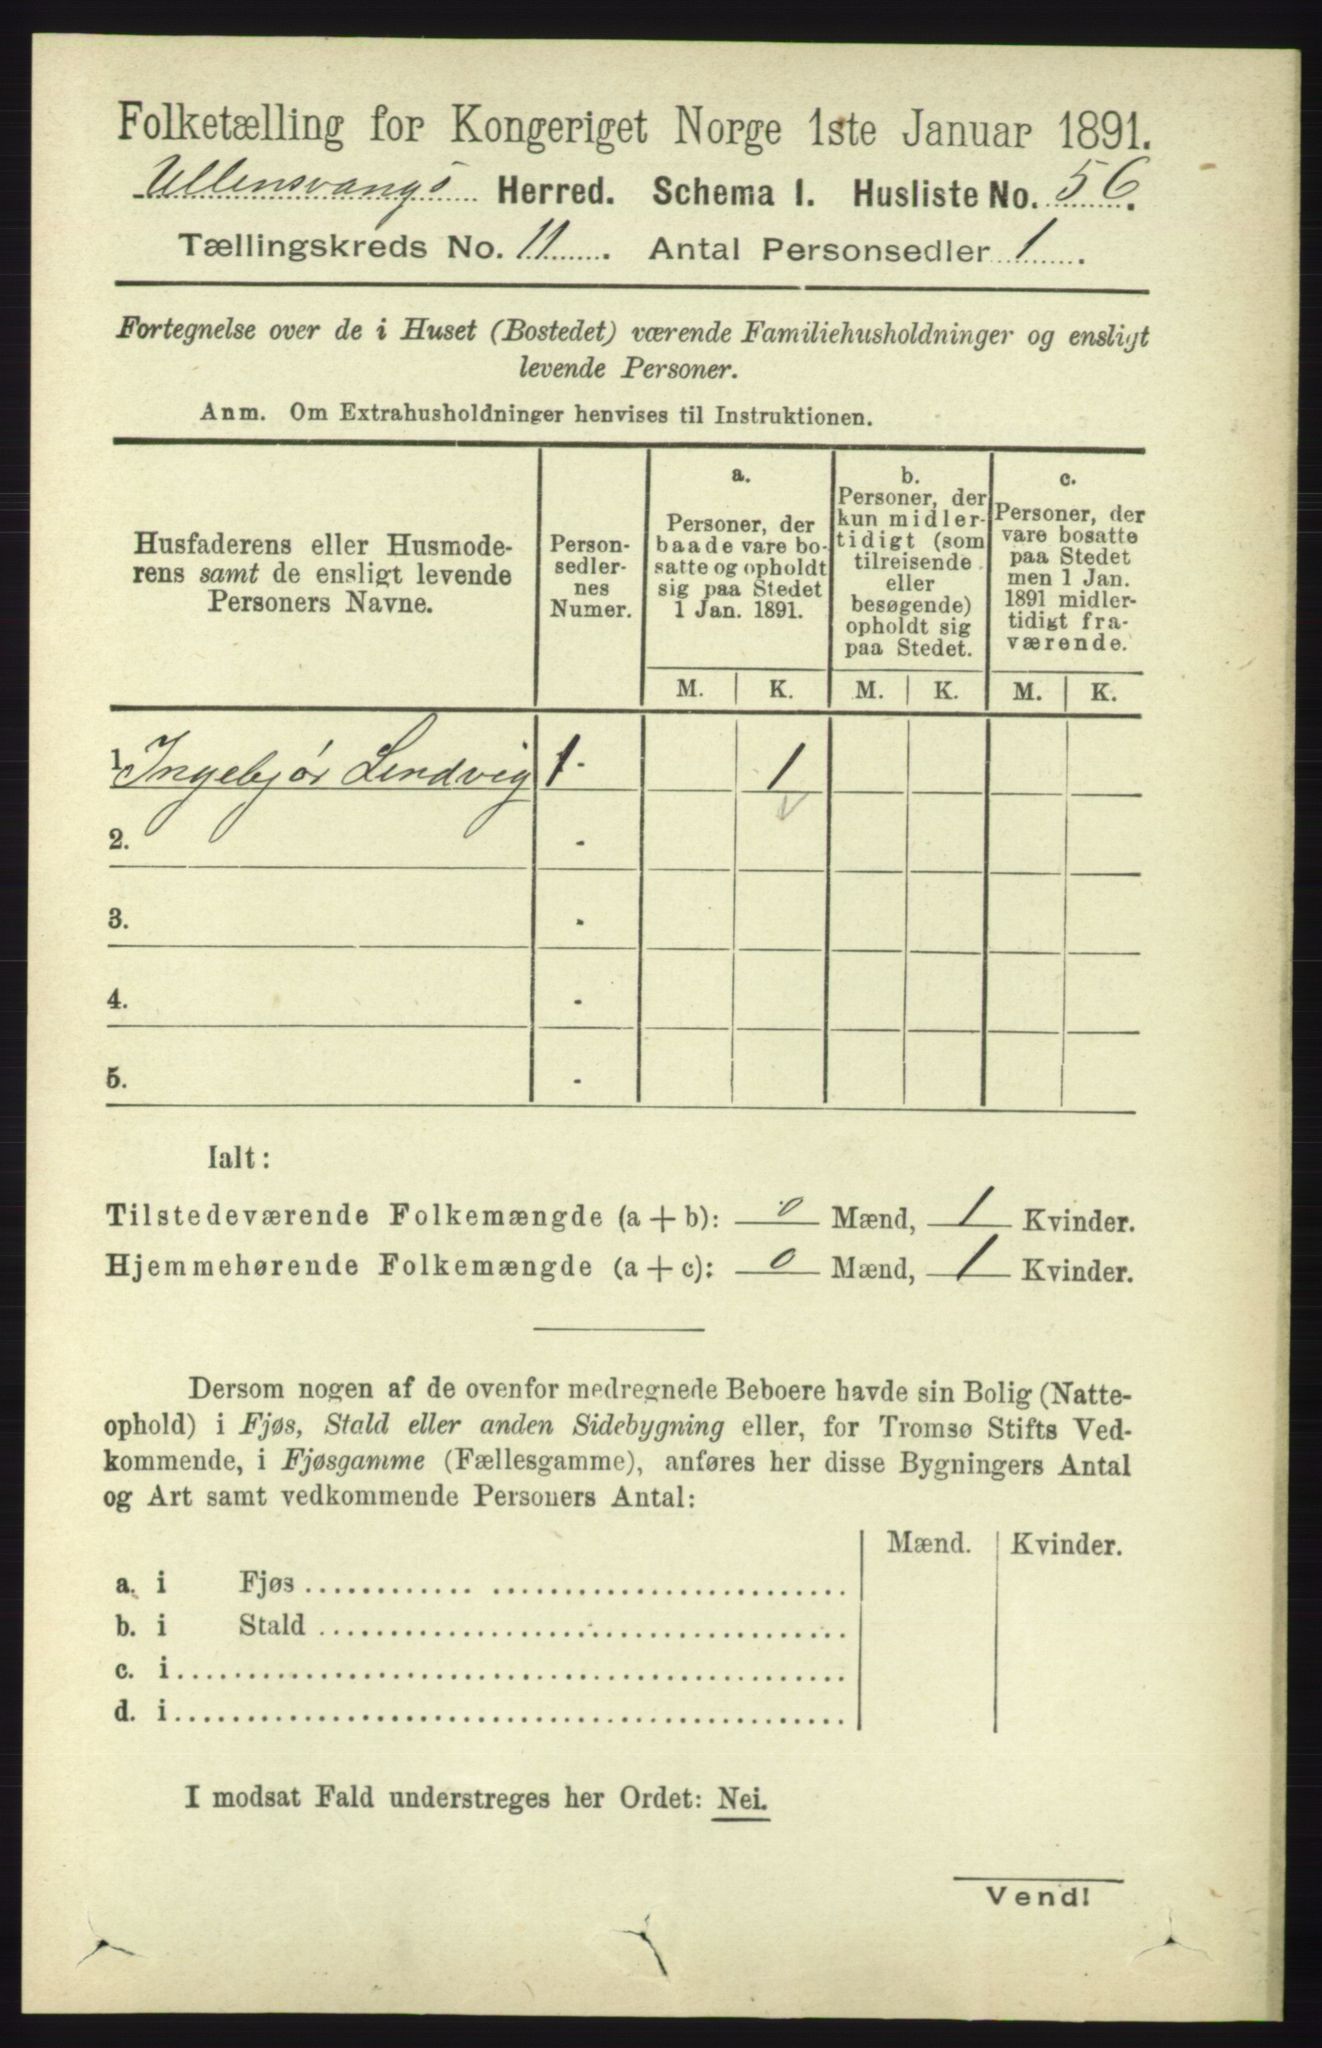 Folketælling for Kongeriget Norge 1ste Januar 1891.
Ullensvangs Herred. Schema I. Husliste No. 56.
Tællingskreds No. 11. Antal Personsedler 1.
Fortegnelse over de i Huset (Bostedet) værende Familiehusholdninger og ensligt
levende Personer.
Anm. Om Extrahusholdninger henvises til Instruktionen.
Husfaderens eller Husmode-
rens samt de ensligt levende
Personers Navne.
Person-
sedler-
nes
Numer.
a.
Personer, der
baade vare bo-
satte og opholdt
sig paa Stedet
1 Jan. 1891.
b.
Personer, der
kun midler-
tidigt (som
tilreisende
eller
besøgende)
opholdt sig
paa Stedet.
c.
Personer, der
vare bosatte
paa Stedet
men 1 Jan.
1891 midler-
tidigt fra-
værende.
M. K. M. K. M. K.
1. Ingebjør Lindvig 1 - 1
2. -
3. -
4. -
5. -
Ialt:
Tilstedeværende Folkemængde (a + b): 0 Mænd, 1 Kvinder.
Hjemmehørende Folkemængde (a + c): 0 Mænd, 1 Kvinder.
Dersom nogen af de ovenfor medregnede Beboere havde sin Bolig (Natte-
ophold) i Fjøs, Stald eller anden Sidebygning eller, for Tromsø Stifts Ved-
kommende, i Fjøsgamme (Fællesgamme), anføres her disse Bygningers Antal
og Art samt vedkommende Personers Antal:
Mænd. Kvinder.
a. i Fjøs
b. i Stald
c. i
d. i
I modsat Fald understreges her Ordet: Nei.
Vend!